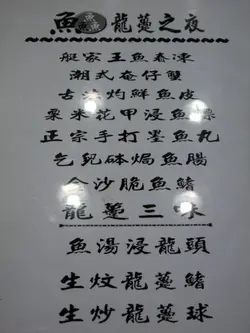 魚龍躉之夜
艇家王魚春凍
潮式奄仔蟹
古法灼鮮魚皮
粟米花甲浸魚
正宗手打墨魚丸
乞兒砵焗魚腸
金沙脆魚鰭
龍躉三味
魚湯浸龍頭
生炆龍躉鰭
生炒龍躉球